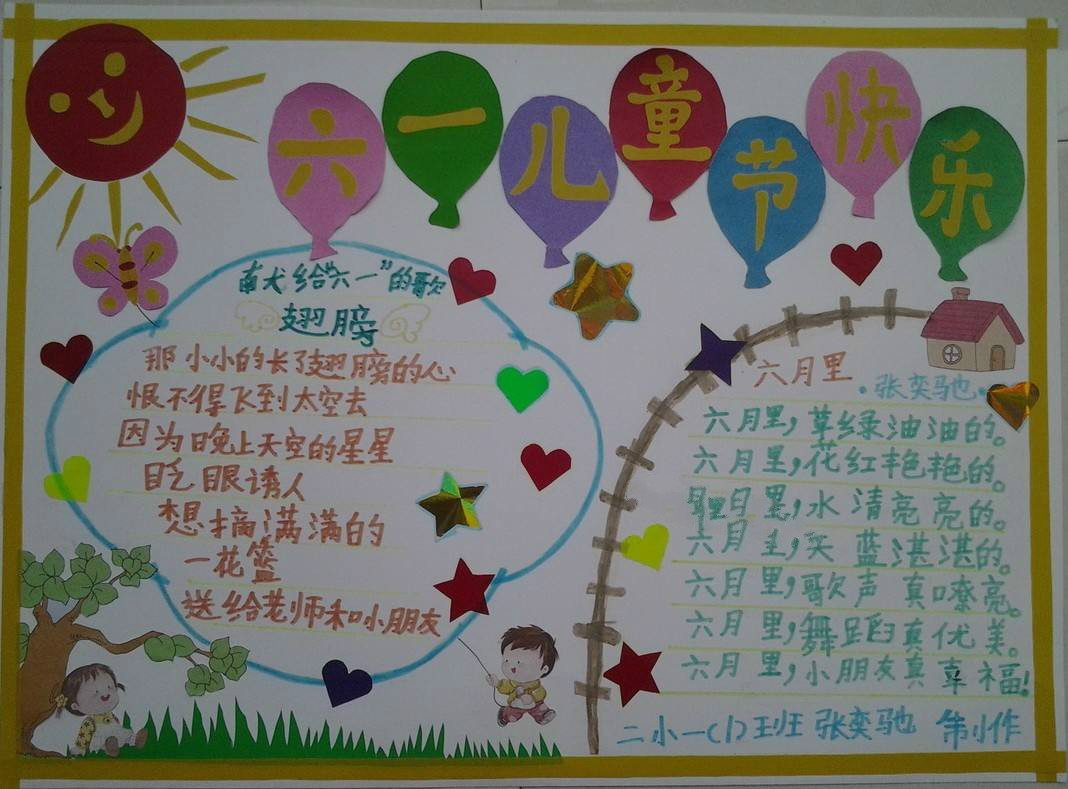 六一儿童节快乐
献给“六一”的歌
翅膀
那小小的长了翅膀的心
恨不得飞到太空去
因为晚上天空的星星
眨眼诱人
想摘满满的
一花篮
送给老师和小朋友
六月里
·张奕驰·
六月里，草绿油油的。
六月里，花红艳艳的。
六月里，水清亮亮的。
六月里，天蓝湛湛的。
六月里，歌声真嘹亮。
六月里，舞蹈真优美。
六月里，小朋友真幸福!
二小一(1)班 张奕驰 制作